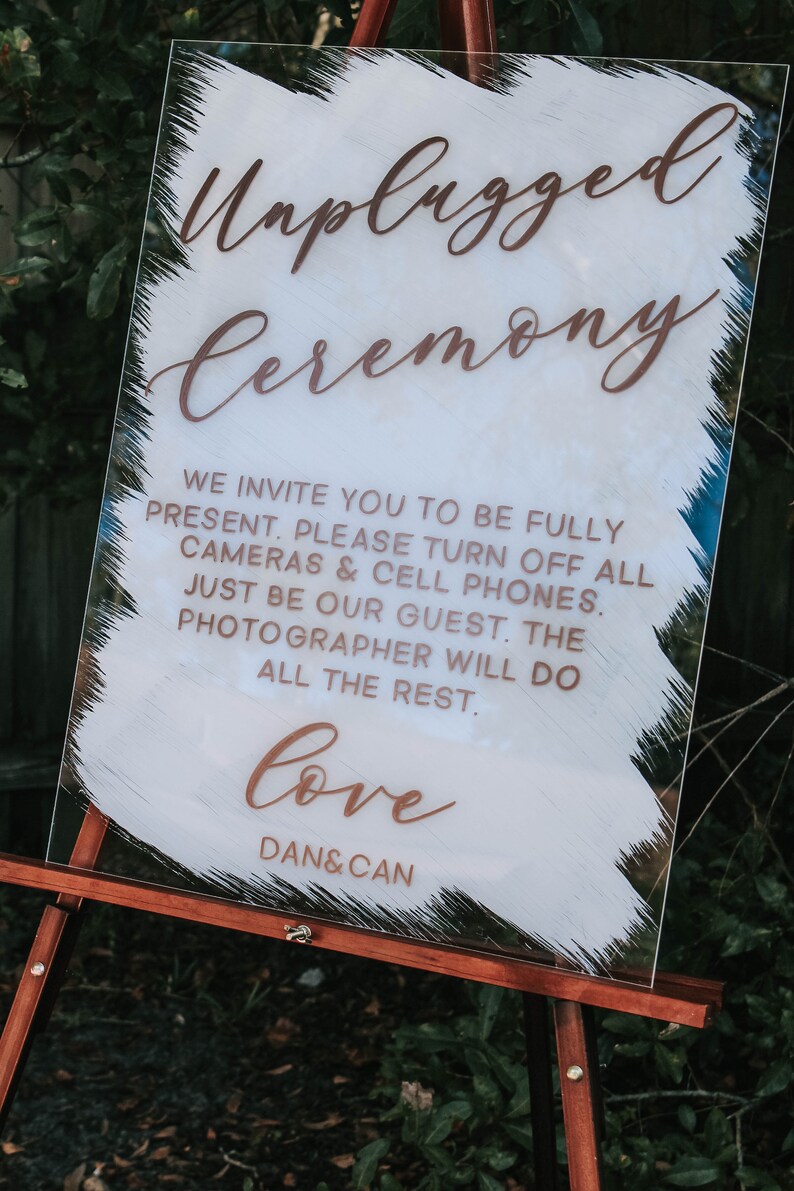 Unplugged
Ceremony
WE INVITE YOU TO BE FULLY
PRESENT. PLEASE TURN OFF ALL
CAMERAS & CELL PHONES.
JUST BE OUR GUEST. THE
PHOTOGRAPHER WILL DO
ALL THE REST.
love
DAN&CAN